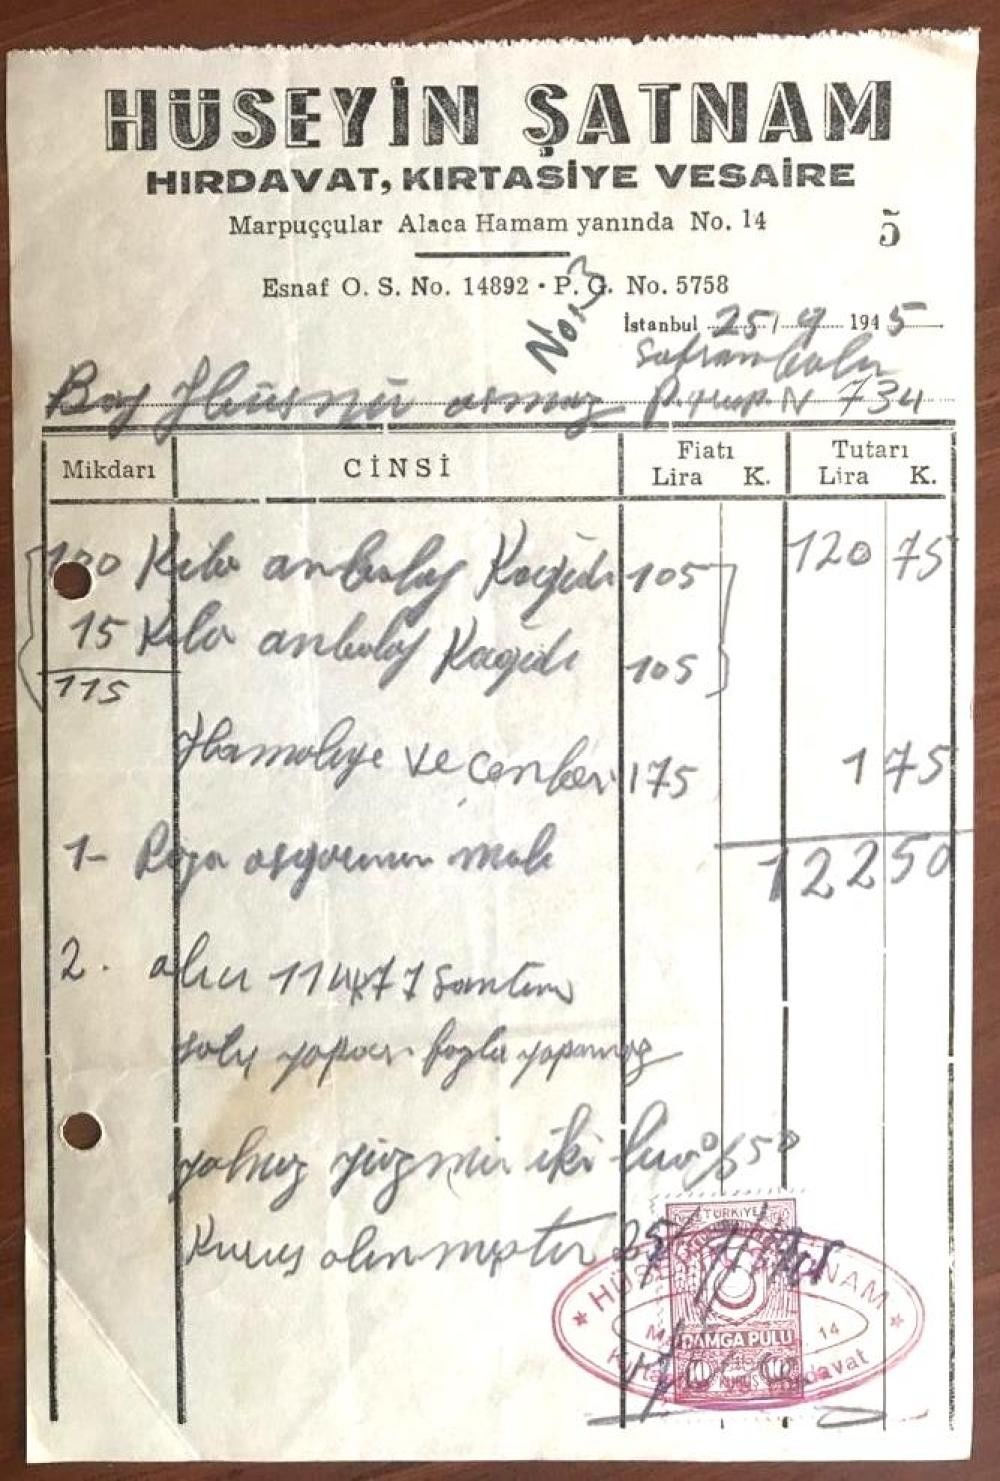 HÜSEYİN ŞATNAM
HIRDAVAT, KIRTASİYE VESAİRE
Marpuççular Alaca Hamam yanında No. 14
5
Esnaf O. S. No. 14892 · P. G. No. 5758
No. 3
İstanbul 25/ 9 1945
Safranbolu
Bay Hüsnü N 734
Mikdarı CİNSİ Fiatı Lira K. Tutarı Lira K.
100 Kilo anbalaj Kağıdı 105 120 75
15 Kilo anbalaj Kağıdı 105
115
Hamaliye ve çenber 175 1 75
122 50
1- malı
2. 77 santim
fazla yapamaz
yalnız yüzyirmi iki lira % 50
Kuruş alınmıştır 25/9/945
TÜRKİYE
HÜSEYİN ŞATNAM
14
DAMGA PULU
KURUŞ